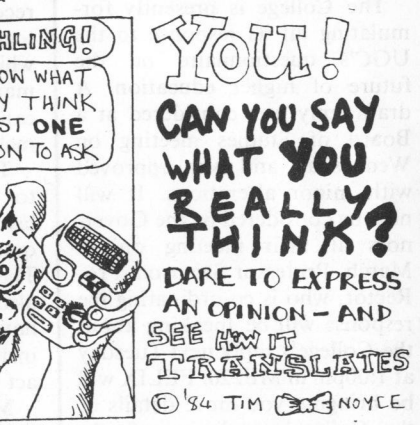 HLING!
OW WHAT
Y THINK
ST ONE
ON TO ASK
YOU!
CAN YOU SAY
WHAT YOU
REALLY
THINK?
DARE TO EXPRESS
AN OPINION – AND
SEE HOW IT
TRANSLATES
© '84 TIM NOYCE